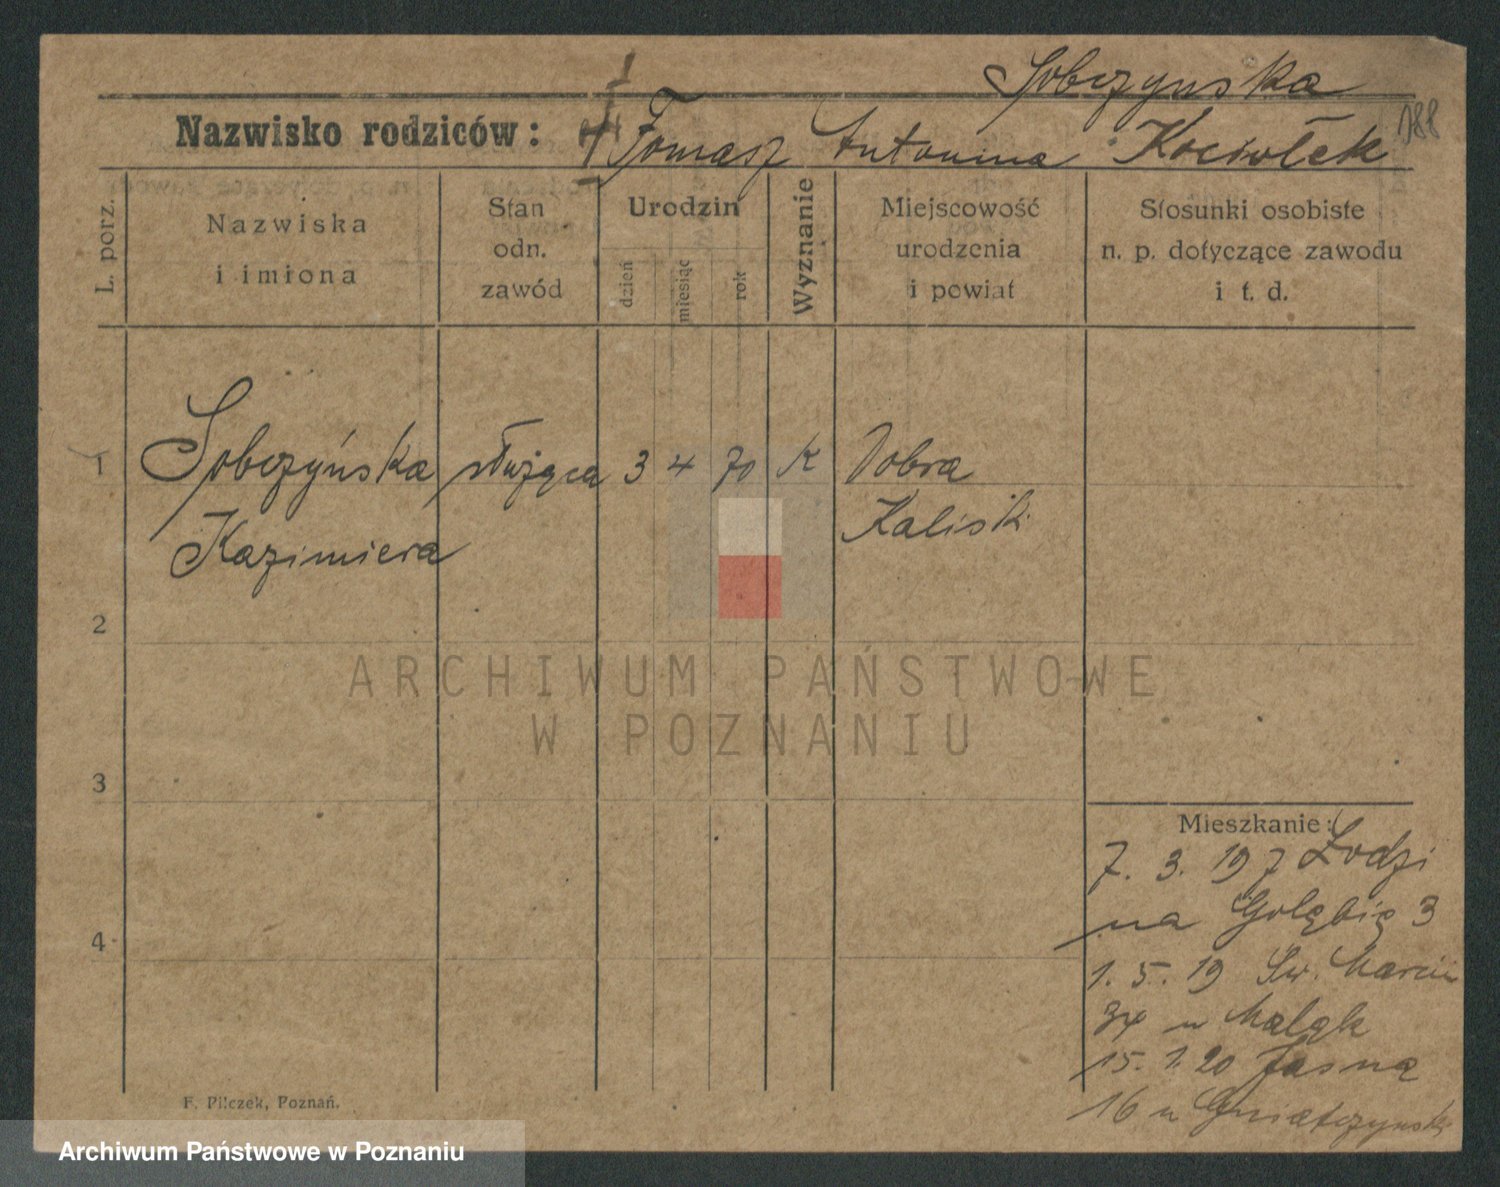 Sobczynska
Nazwisko rodziców: Tomasz Antonina Kociołek
188
L. porz.
Nazwiska
i imiona
Stan
odn.
zawód
Urodzin
dzień
miesiąc
rok
Wyznanie
Miejscowość
urodzenia
i powiat
Stosunki osobiste
n. p. dotyczące zawodu
i t. d.
1 Sobczyńska służąca 3 4 70 K Dobra
Kazimiera Kaliski
2
ARCHIWUM PAŃSTWOWE
W POZNANIU
3
Mieszkanie:
7. 3. 19 z Łodzi
na Gołębią 3
4
1. 5. 19 Św. Marcin
u Maląk
15. 1. 20 Jasną
16 u
F. Pilczek, Poznań.
Archiwum Państwowe w Poznaniu